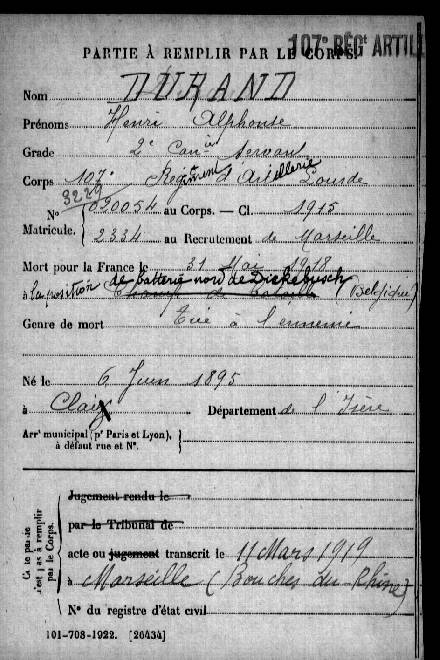 107e RÉGt ARTILL
PARTIE À REMPLIR PAR LE CORPS.
Nom DURAND
Prénoms Henri Alphonse
Grade 2e Canier Servant
Corps 107e Régiment d'Artillerie Lourde
3229
No 020054 au Corps. — Cl. 1915
Matricule. 2334 au Recrutement de Marseille
Mort pour la France le 31 Mai 1918
à la position de batterie nord de Dickebusch (Belgique)
Genre de mort Tué à l'ennemi
Né le 6 Juin 1895
à Claix Département de l'Isère
Arrt municipal (pr Paris et Lyon),
à défaut rue et No.
Jugement rendu le
par le Tribunal de
acte ou jugement transcrit le 11 Mars 1919
à Marseille (Bouches du Rhône)
No du registre d'état civil
Cette partie
n'est pas à remplir
par le Corps.
101-708-1922. [26434]